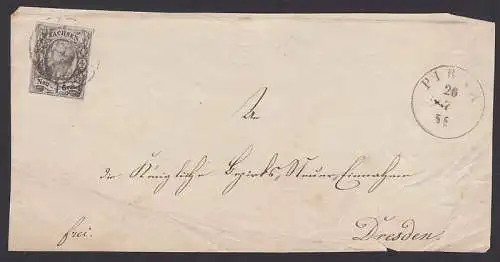 SACHSEN
Neu- Grosch.
PIRNA
26
An
die Königliche Bezirks-Steuer-Einnahme
Dresden.
frei.